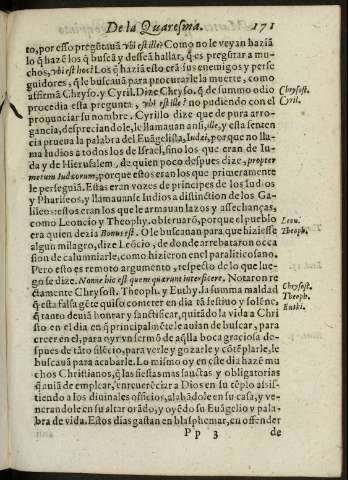 De la Quaresma. 171
to, por esso pregũtauã vbi est ille? Como no le veyan haziã
lo q̃ hazẽ los q̃ buscã y dessẽa hallar, q̃ es pregũtar a mu-
chos, vbi est hoc? Los q̃ hazia esto erã sus enemigos y perse
guidores, q̃ le buscauã para procurarle la muerte, como
affirmã Chryso. y Cyril. Dize Chryso. q̃ de summo odio
procedia esta pregunta, vbi est ille? no pudiendo con el
pronunciar su nombre. Cyrillo dize que de pura arro-
gancia, despreciandole, le llamauan ansi, ille, y esta senten
cia prueua la palabra del Euãgelista, Iudæi, porque no lla-
ma Iudios a todos los de Israel, sino los que eran de Iu-
da y de Hierusalem, de quien poco despues dize, propter
metum Iudæorum, porque estos eran los que primeramente
le perseguiã. Estas eran vozes de principes de los Iudios
y Phariseos, y llamauanse Iudios a distinction de los Ga-
lileos: estos eran los que le armauan lazos y assechanças,
como Leoncio y Theophy. obseruarõ, porque el pueblo
era quien dezia Bonus est. O le buscauan para que hiziesse
algun milagro, dize Leõcio, de donde arrebataron occa
sion de calumniarle, como hizieron en el paralitico sano.
Pero esto es remoto argumento, respecto de lo que lue-
go se dize. Nonne hic est quem quærunt interficere. Notaron re
ctamente Chrysost. Theoph. y Euthy. la summa maldad
q̃ esta falsa gẽte quiso cometer en dia tã festiuo y solẽne,
q̃ tanto deuiã honrar y sanctificar, quitãdo la vida a Chri
sto en el dia en q̃ principalmẽte le auian de buscar, para
creer en el, para oyr vn sermõ de aq̃lla boca graciosa des-
pues de tãto silẽcio, para verle y gozarle y cõtẽplarle, le
buscauã para acabarle. Lo mismo oy en este dia hazẽ mu
chos Christianos, q̃ las fiestas mas sanctas y obligatorias
q̃ auiã de emplear, en reuerẽciar a Dios en su tẽplo assis-
tiendo a los diuinales officios, alabãdole en su casa, y ve-
nerandole en su altar orãdo, y oyẽdo su Euãgelio y pala-
bra de vida. Estos dias gastan en blasphemar, en offender
Pp 3 de
Chrysost.
Cyril.
Leon.
Theoph.
Chrysost.
Theoph.